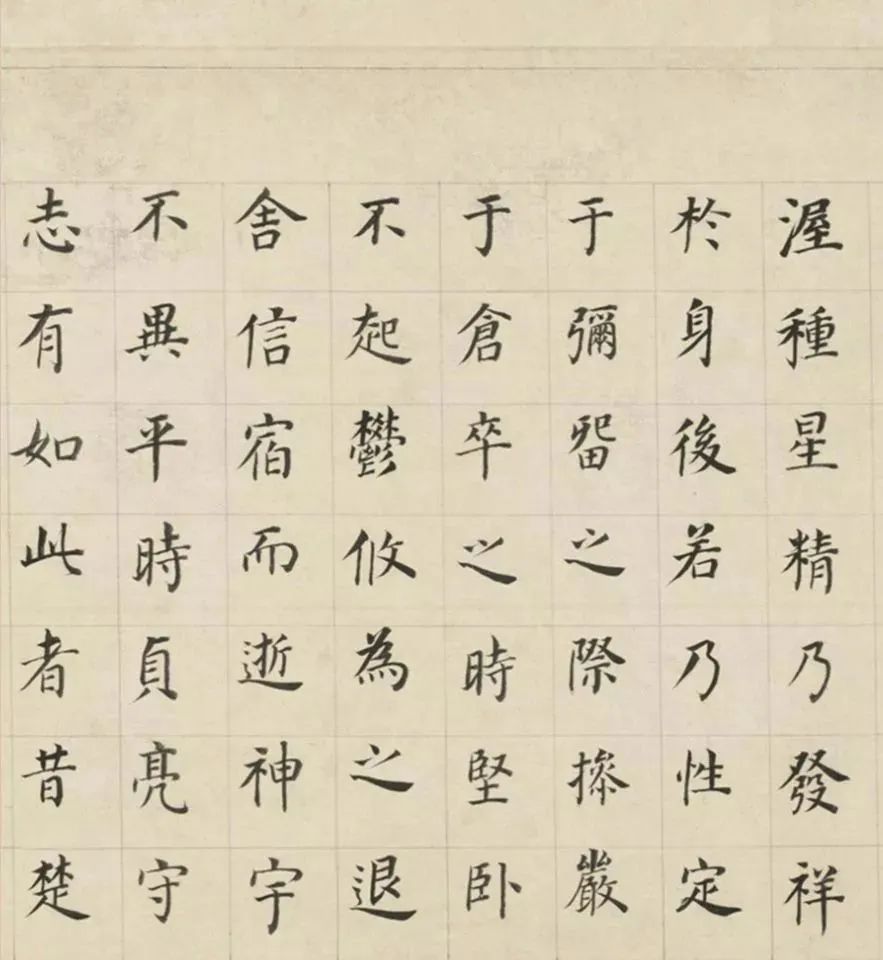 渥種星精乃發祥
於身後若乃性定
于彌畱之際摻嚴
于倉卒之時堅卧
不起鬱攸為之退
舍信宿而逝神宇
不異平時貞亮守
志有如此者昔楚